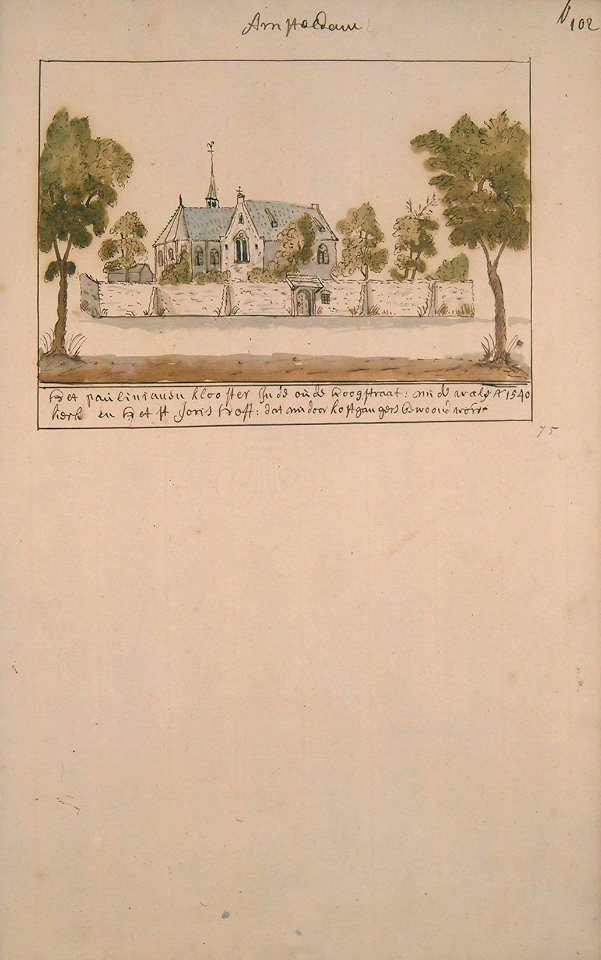 Amsteldam
102
Het paulinianer klooster In de oude hoogstraat: nu de wals A 1540
kerk en Het st Joris Hoff: dat nu door kostgangers bewoond word
75